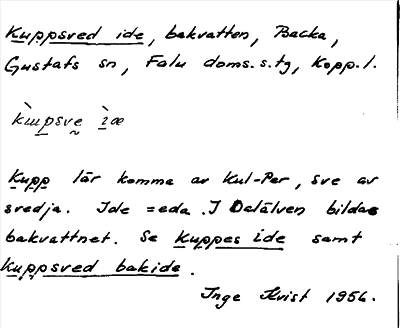 Kuppsved ide, bakvatten, Backa,
Gustafs sn, Falu doms.s.tg, Kopp.l.
kɯpsve ìæ
Kupp lär komma av Kul-Per, sve av
svedja. Ide =eda. I Dalälven bildas
bakvattnet. Se Kuppes ide samt
Kuppsved bakide.
Inge Kvist 1956.